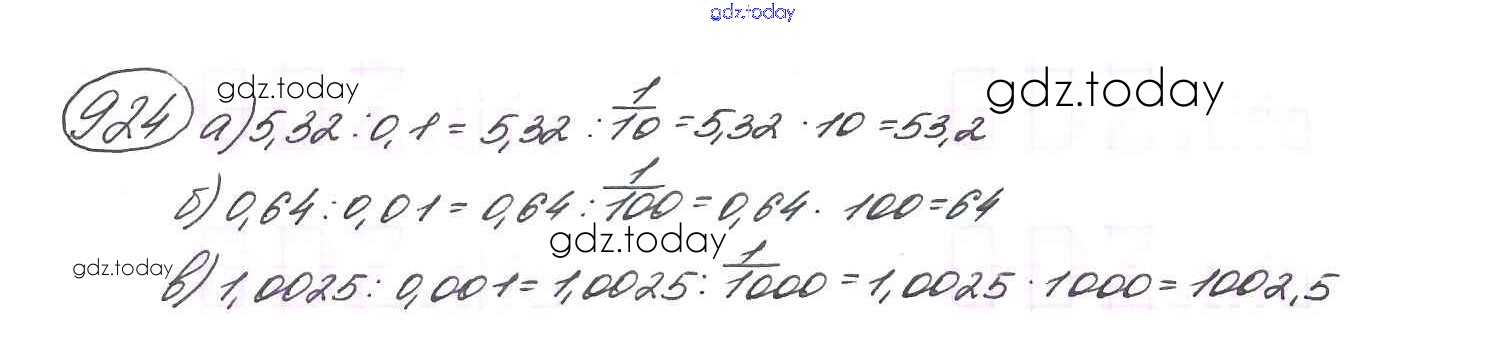 gdz.today
924 а) 5,32 : 0,1 = 5,32 : 1/10 = 5,32 · 10 = 53,2
gdz.today gdz.today
б) 0,64 : 0,01 = 0,64 : 1/100 = 0,64 · 100 = 64
gdz.today
в) 1,0025 : 0,001 = 1,0025 : 1/1000 = 1,0025 · 1000 = 1002,5
gdz.today